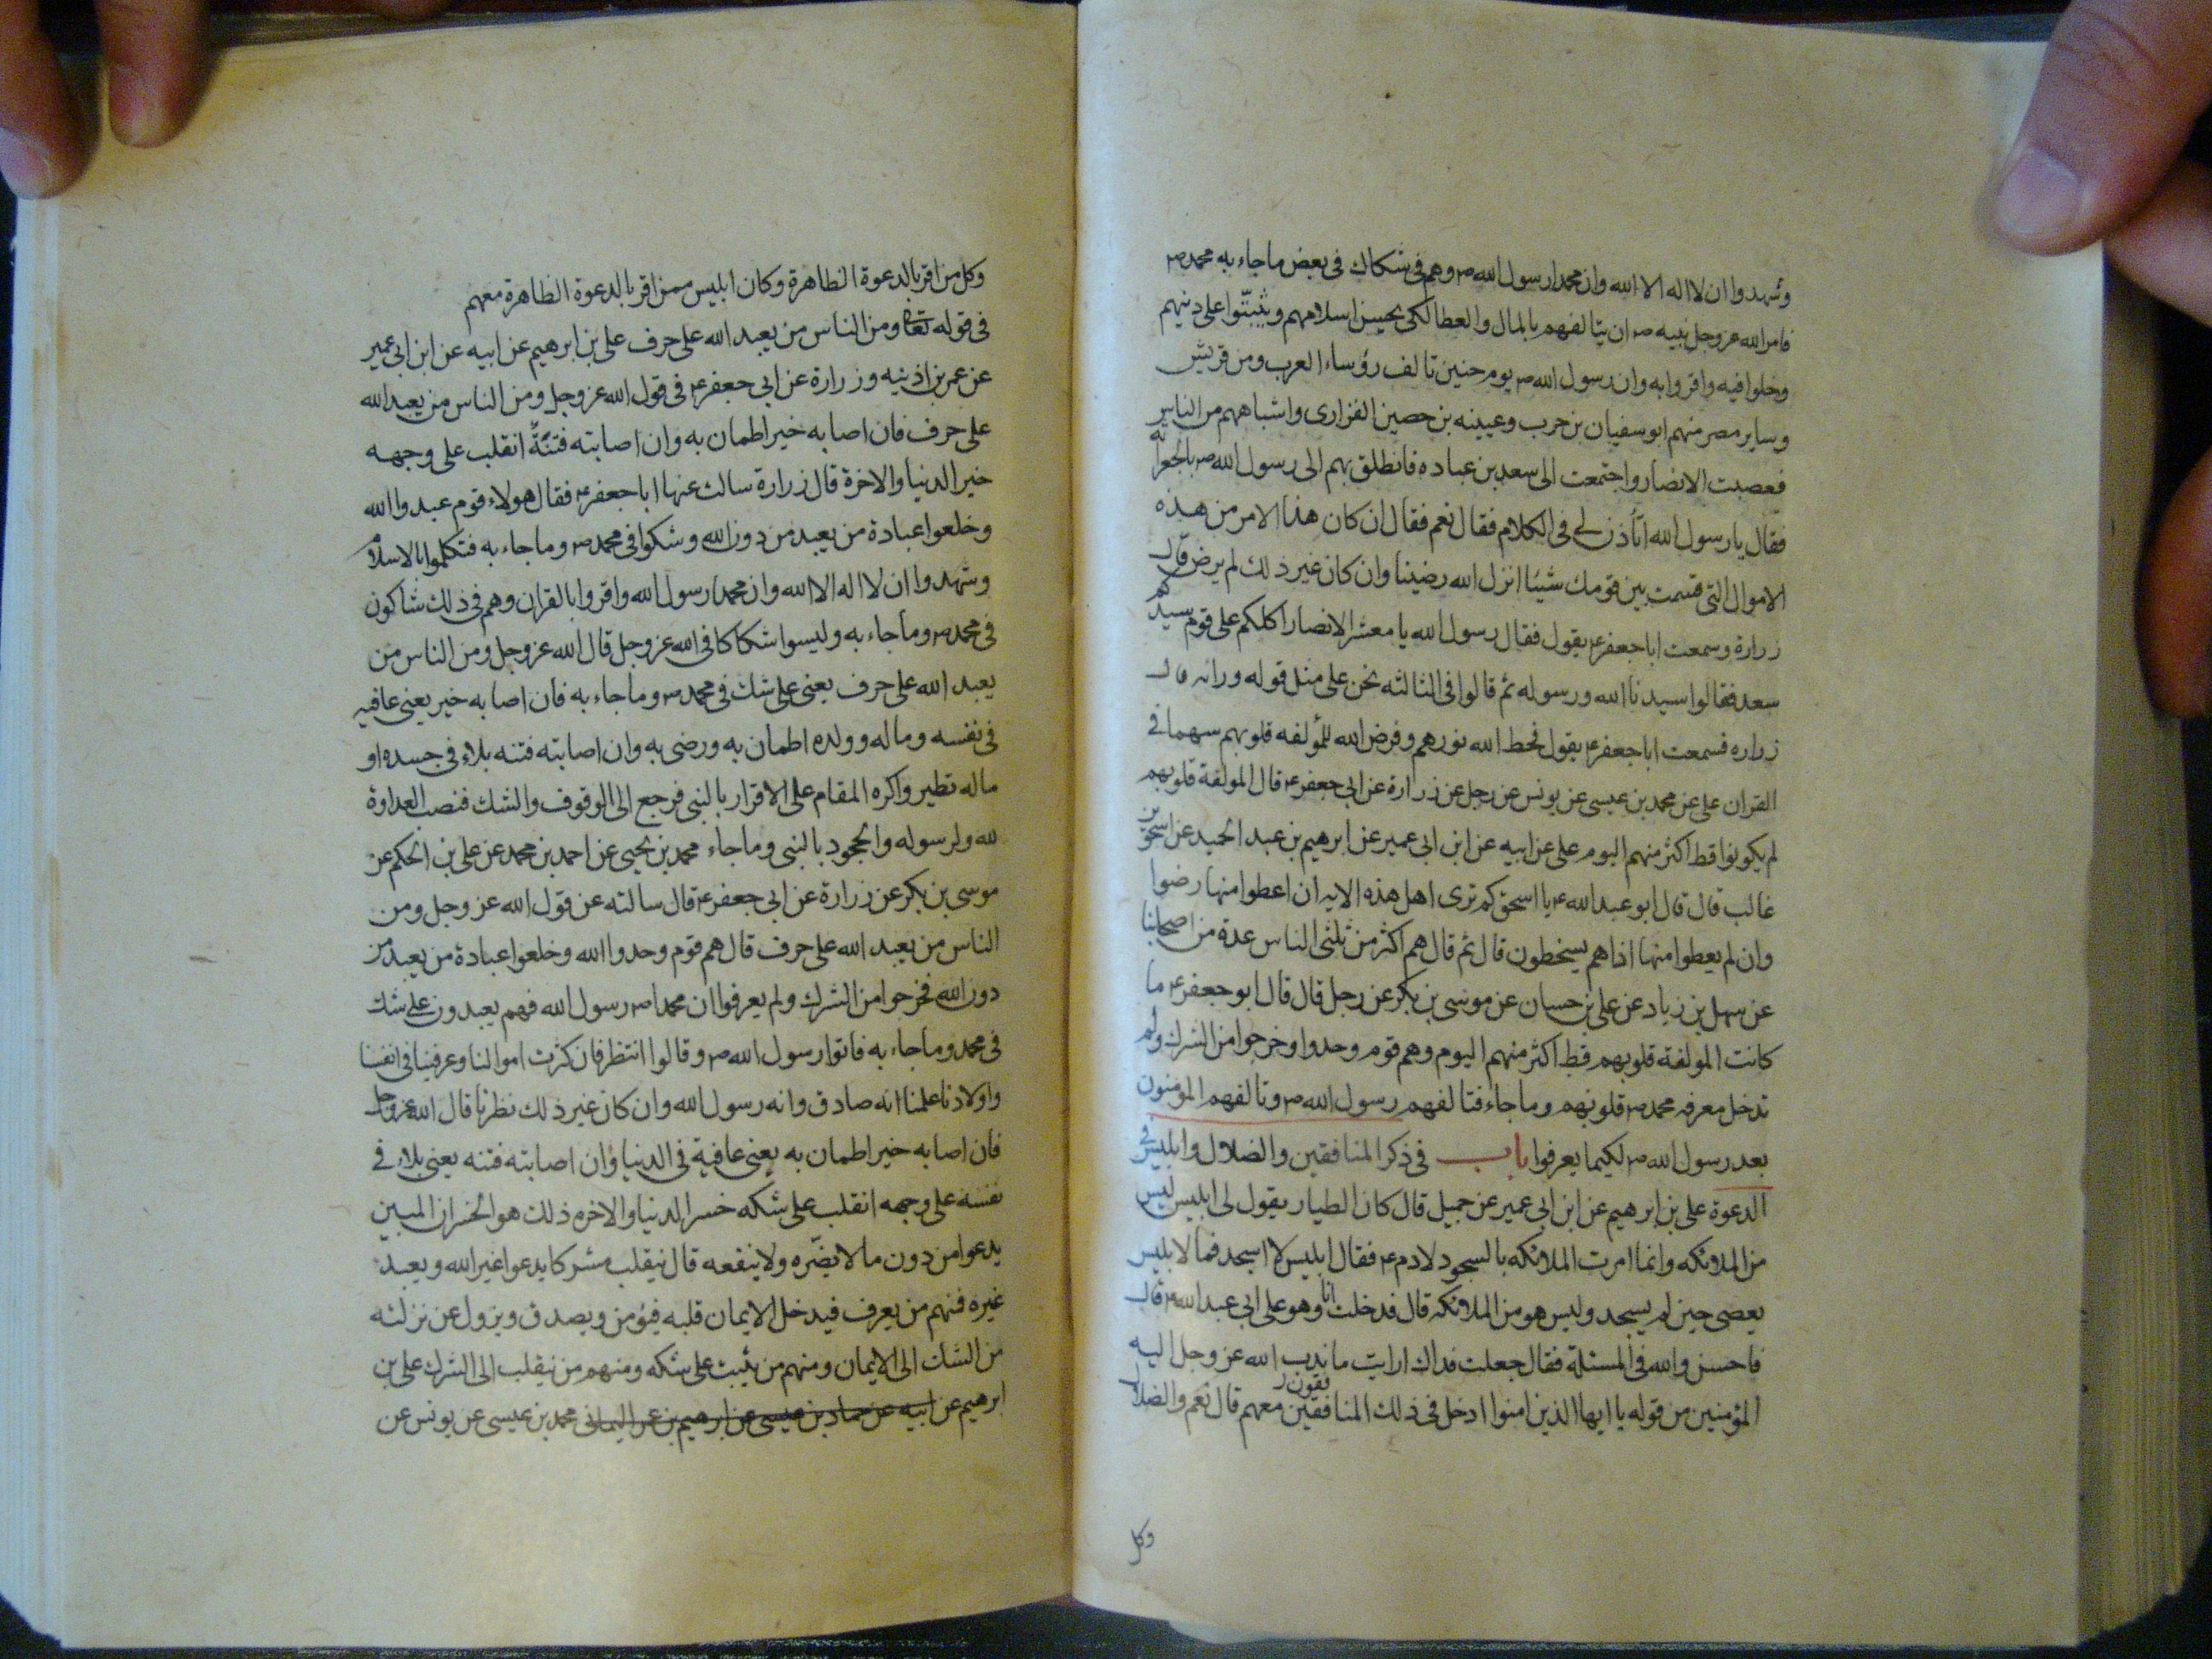 وشهدوا ان لا اله الا الله وان محمدا رسول الله ص وهم فى شكاك فى بعض ما جاء به محمد ص
فامر الله عز وجل نبيه ص ان يتالفهم بالمال والعطا لكى يحسن اسلامهم ويثبتوا على دينهم
ودخلوا فيه واقروا به وان رسول الله ص يوم حنين تالف رؤساء العرب ومن قريش
وساير مصر منهم ابو سفيان بن حرب وعيينه بن حصين الفزارى واشباههم من الناس
فعصبت الانصار واجتمعت الى سعد بن عباده فانطلق بهم الى رسول الله ص بالجعرانه
فقال يا رسول الله اتأذن لى فى الكلام فقال نعم فقال ان كان هذا الامر من هذه
الاموال التى قسمت بين قومك شيئا انزل الله رضينا وان كان غير ذلك لم نرض قال
زرارة وسمعت ابا جعفر ع يقول فقال رسول الله يا معشر الانصار اكلكم على قوم سيدكم
سعد فقالوا سيدنا الله ورسوله ثم قالوا فى الثالثه نحن على مثل قوله ورائه قال
زراره فسمعت ابا جعفر ع يقول فحط الله نورهم وفرض الله للمؤلفه قلوبهم سهما فى
القران على عن محمد بن عيسى عن يونس عن رجل عن زرارة عن ابى جعفر ع قال المولفة قلوبهم
لم يكونوا قط اكثر منهم اليوم على عن ابيه عن ابن ابى عمير عن ابرهيم بن عبد الحميد عن اسحق بن
غالب قال قال ابو عبد الله ع يا اسحق كم ترى اهل هذه الايه ان اعطوا منها رضوا
وان لم يعطوا منها اذا هم يسخطون قال ثم قال هم اكثر من ثلثى الناس عدة من اصحابنا
عن سهل بن زياد عن على بن حسان عن موسى بن بكر عن رجل قال قال ابو جعفر ع ما
كانت المولفة قلوبهم قط اكثر منهم اليوم وهم قوم وحدوا وخرجوا من الشرك ولم
تدخل معرفه محمد ص قلوبهم وما جاء فتالفهم رسول الله ص وتالفهم المؤمنون
بعد رسول الله ص لكيما يعرفوا باب فى ذكر المنافقين والضلال وابليس فى
الدعوة على بن ابرهيم عن ابن ابى عمير عن جميل قال كان الطيار يقول لى ابليس ليس
من الملائكه وانما امرت الملائكه بالسجود لادم ع فقال ابليس لا اسجد فما لابليس
يعصى حين لم يسجد وليس هو من الملائكه قال فدخلت انا وهو على ابى عبد الله ع قال
فاحسن والله فى المسئلة فقال جعلت فداك ارايت ما ندب الله عز وجل اليه
المؤمنين من قوله يا ايها الذين امنوا ادخل فى ذلك المنافقين معهم قال نعم والضلال
وكل
وكل من اقر بالدعوة الظاهرة وكان ابليس ممن اقر بالدعوة الظاهرة معهم
فى قوله تعالى ومن الناس من يعبد الله على حرف على بن ابرهيم عن ابيه عن ابن ابى عمير
عن عمر بن اذينه وزرارة عن ابى جعفر ع فى قول الله عز وجل ومن الناس من يعبد الله
على حرف فان اصابه خير اطمان به وان اصابته فتنة انقلب على وجهه
خسر الدنيا والاخرة قال زرارة سالت عنها ابا جعفر ع فقال هولاء قوم عبدوا الله
وخلعوا عبادة من يعبد من دون الله وشكوا فى محمد ص وما جاء به فتكلموا بالاسلام
وشهدوا ان لا اله الا الله وان محمدا رسول الله واقروا بالقران وهم فى ذلك شاكون
فى محمد ص وما جاء به وليسوا شكاكا فى الله عز وجل قال الله عز وجل ومن الناس من
يعبد الله على حرف يعنى على شك فى محمد ص وما جاء به فان اصابه خير يعنى عافيه
فى نفسه وماله وولده اطمان به ورضى به وان اصابته فتنه بلاء فى جسده او
ماله تطير واكره المقام على الاقرار بالنبى فرجع الى الوقوف والشك فنصب العداوة
لله ولرسوله والجحود بالنبى وما جاء محمد بن يحيى عن احمد بن محمد عن على بن الحكم عن
موسى بن بكر عن زرارة عن ابى جعفر ع قال سالته عن قول الله عز وجل ومن
الناس من يعبد الله على حرف قال هم قوم وحدوا الله وخلعوا عبادة من يعبد من
دون الله فخرجوا من الشرك ولم يعرفوا ان محمدا ص رسول الله فهم يعبدون على شك
فى محمد وما جاء به فاتوا رسول الله ص وقالوا انتظر فان كثرت اموالنا وعوفينا فى انفسنا
واولادنا علمنا انه صادق وانه رسول الله وان كان غير ذلك نظرنا قال الله عز وجل
فان اصابه خير اطمان به يعنى عافية فى الدنيا وان اصابته فتنه يعنى بلاء فى
نفسه على وجهه انقلب على شكه خسر الدنيا والاخره ذلك هو الخسران المبين
يدعوا من دون ما لا يضره ولا ينفعه قال ينقلب مشركا يدعوا غير الله ويعبد
غيره فمنهم من يعرف فيدخل الايمان قلبه فيؤمن ويصدق ويزول عن نزلته
من الشك الى الايمان ومنهم من يثبت على شكه ومنهم من ينقلب الى الشرك على بن
ابرهيم عن ابيه عن حماد بن عيسى عن ابرهيم بن عمر اليمانى محمد بن عيسى عن يونس عن